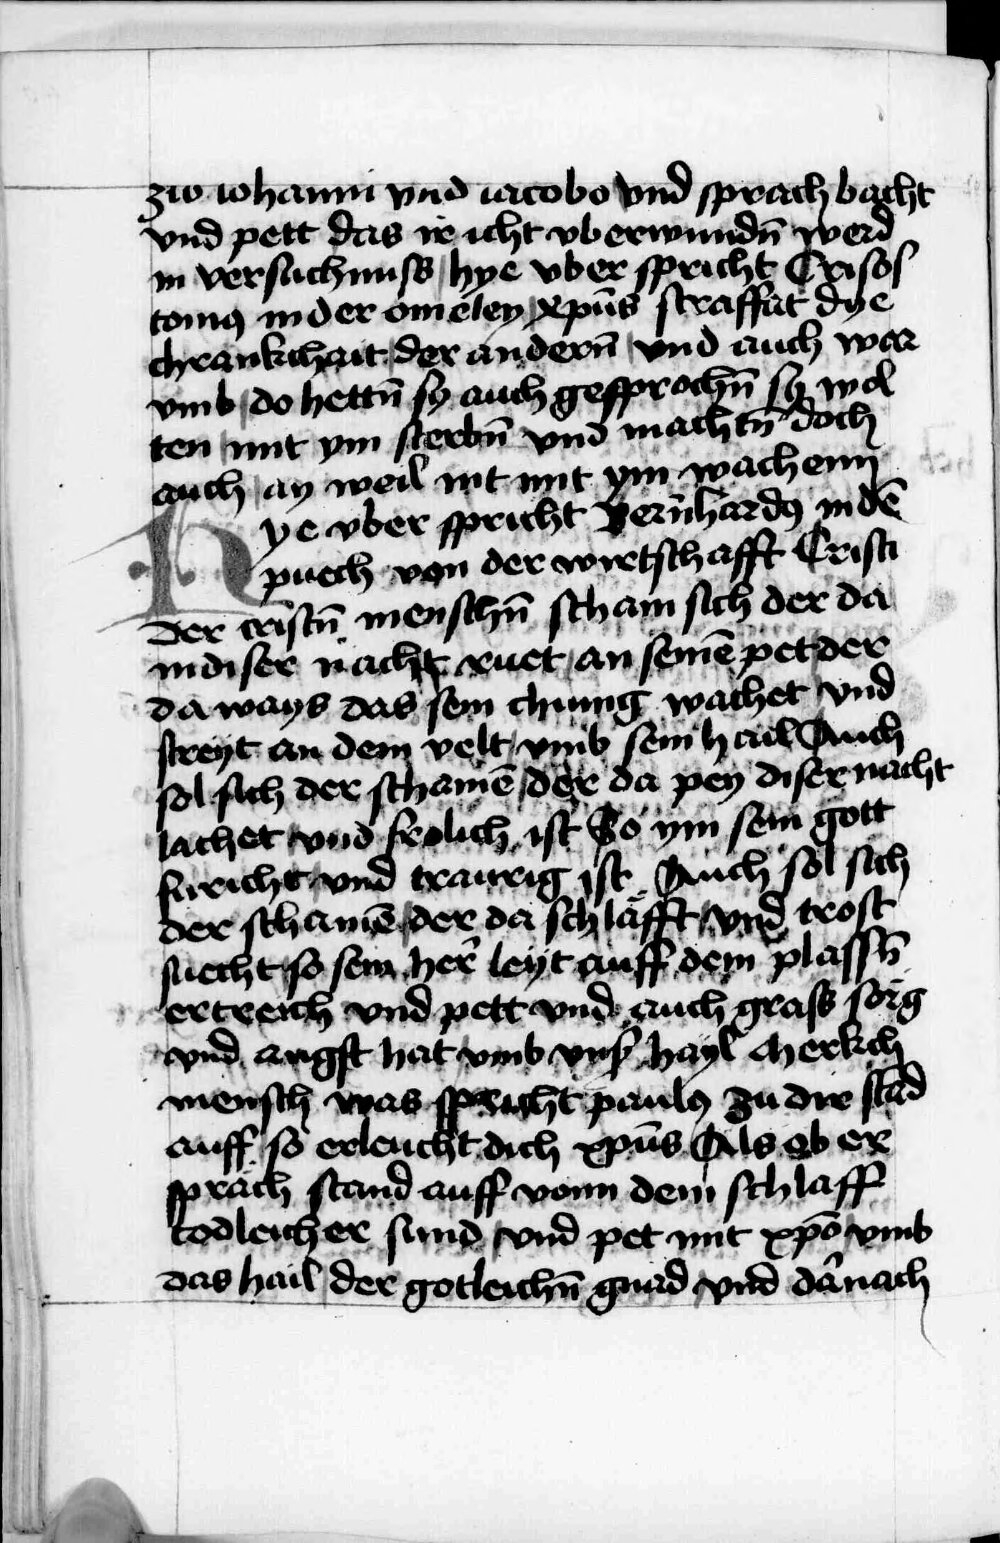 zw iohanni vnd iacobo vnd sprach bacht
vnd pett das ir icht vberwundn̄ werd
in versuchnuss hye vber spricht Crisos
tomꝰ in der omeley xpūs straffat dye
chrankchait der andern̄ vnd auch war
vmb do hettn̄ sy auch gesprochn̄ sy wol
ten mit ym sterbn̄ vnd machtn̄ doch
auch ay weil nit mit ym wachenn
Hye vber spricht Bern̄hardꝰ in dē
puech von der wirtschafft Cristi
Der cristn̄ menschn̄ scham sich der da
in diser nacht ruet an seinē pet der
da ways das sein chunig wachet vnd
streyt an dem velt vmb sein hail Auch
sol sich der schamē der da pey diser nacht
lachet vnd frolich ist So ym sein gott
furicht vnd traurig ist Auch sol sich
der schamē der da schläfft vnd trost
suecht so sein her̄ leyt auff dem plassn̄
ertreich vnd pett vnd auch grass sorg
vnd angst hat vmb vnsˀ hayl Merkch
mensch was spricht paulꝰ zu dir stād
auff so erleucht dich xpūs Als ob er
sprach stand auff vonn dem schlaff
todleicher sund vnd pet mit xpō vmb
das hail der gotleichn̄ gnad vnd dānach